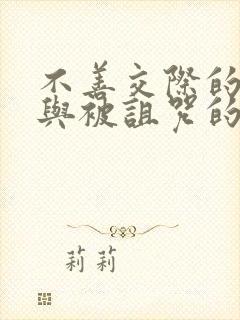 不善交際的
與被詛咒的
莉莉